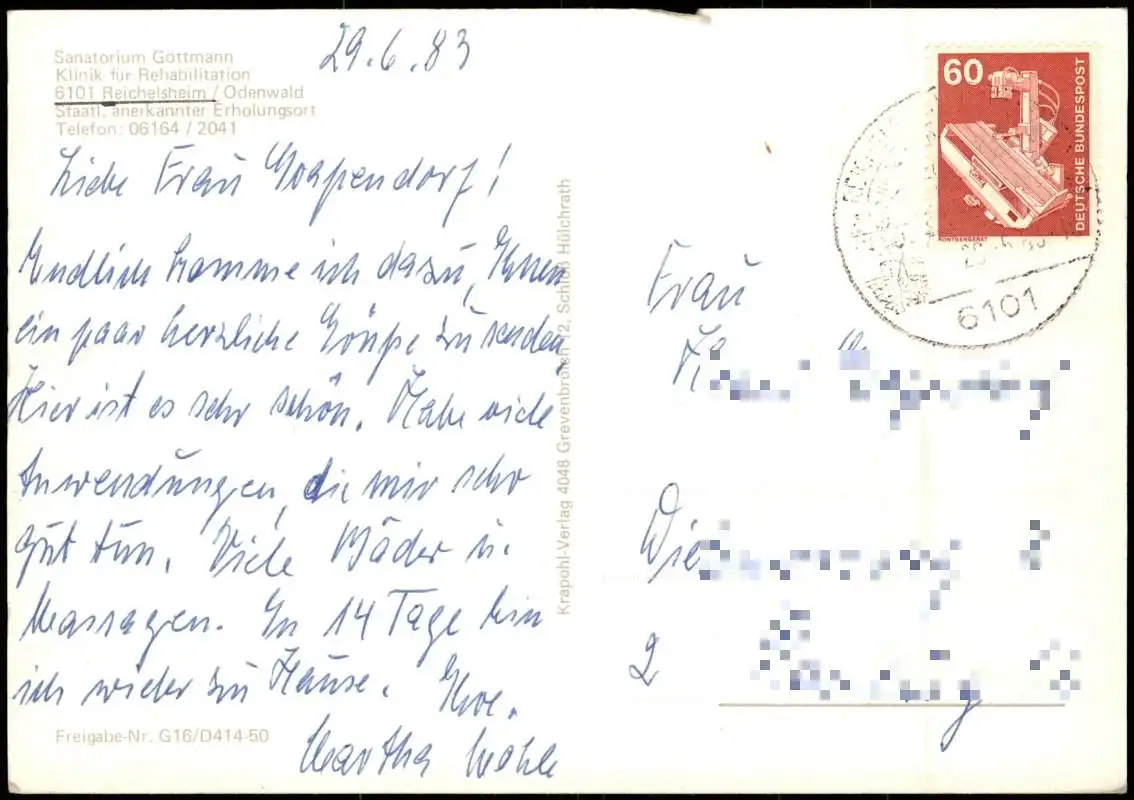 Sanatorium Göttmann
Klinik für Rehabilitation
6101 Reichelsheim / Odenwald
Staatl. anerkannter Erholungsort
Telefon: 06164 / 2041
29.6.83
Liebe Frau !
Endlich komme ich dazu, Ihnen
ein paar herzliche Grüße zu senden,
Hier ist es sehr schön. Habe viele
Anwendungen, die mir sehr
gut tun. Viele Bäder u.
Massagen. In 14 Tage bin
ich wieder zu Hause. Ihre.
Martha
Freigabe-Nr. G16/D414-50
Krapohl-Verlag 4048 Grevenbroich 12, Schloß Hülchrath
60
DEUTSCHE BUNDESPOST
RÖNTGENGERÄT
6101
Frau
2